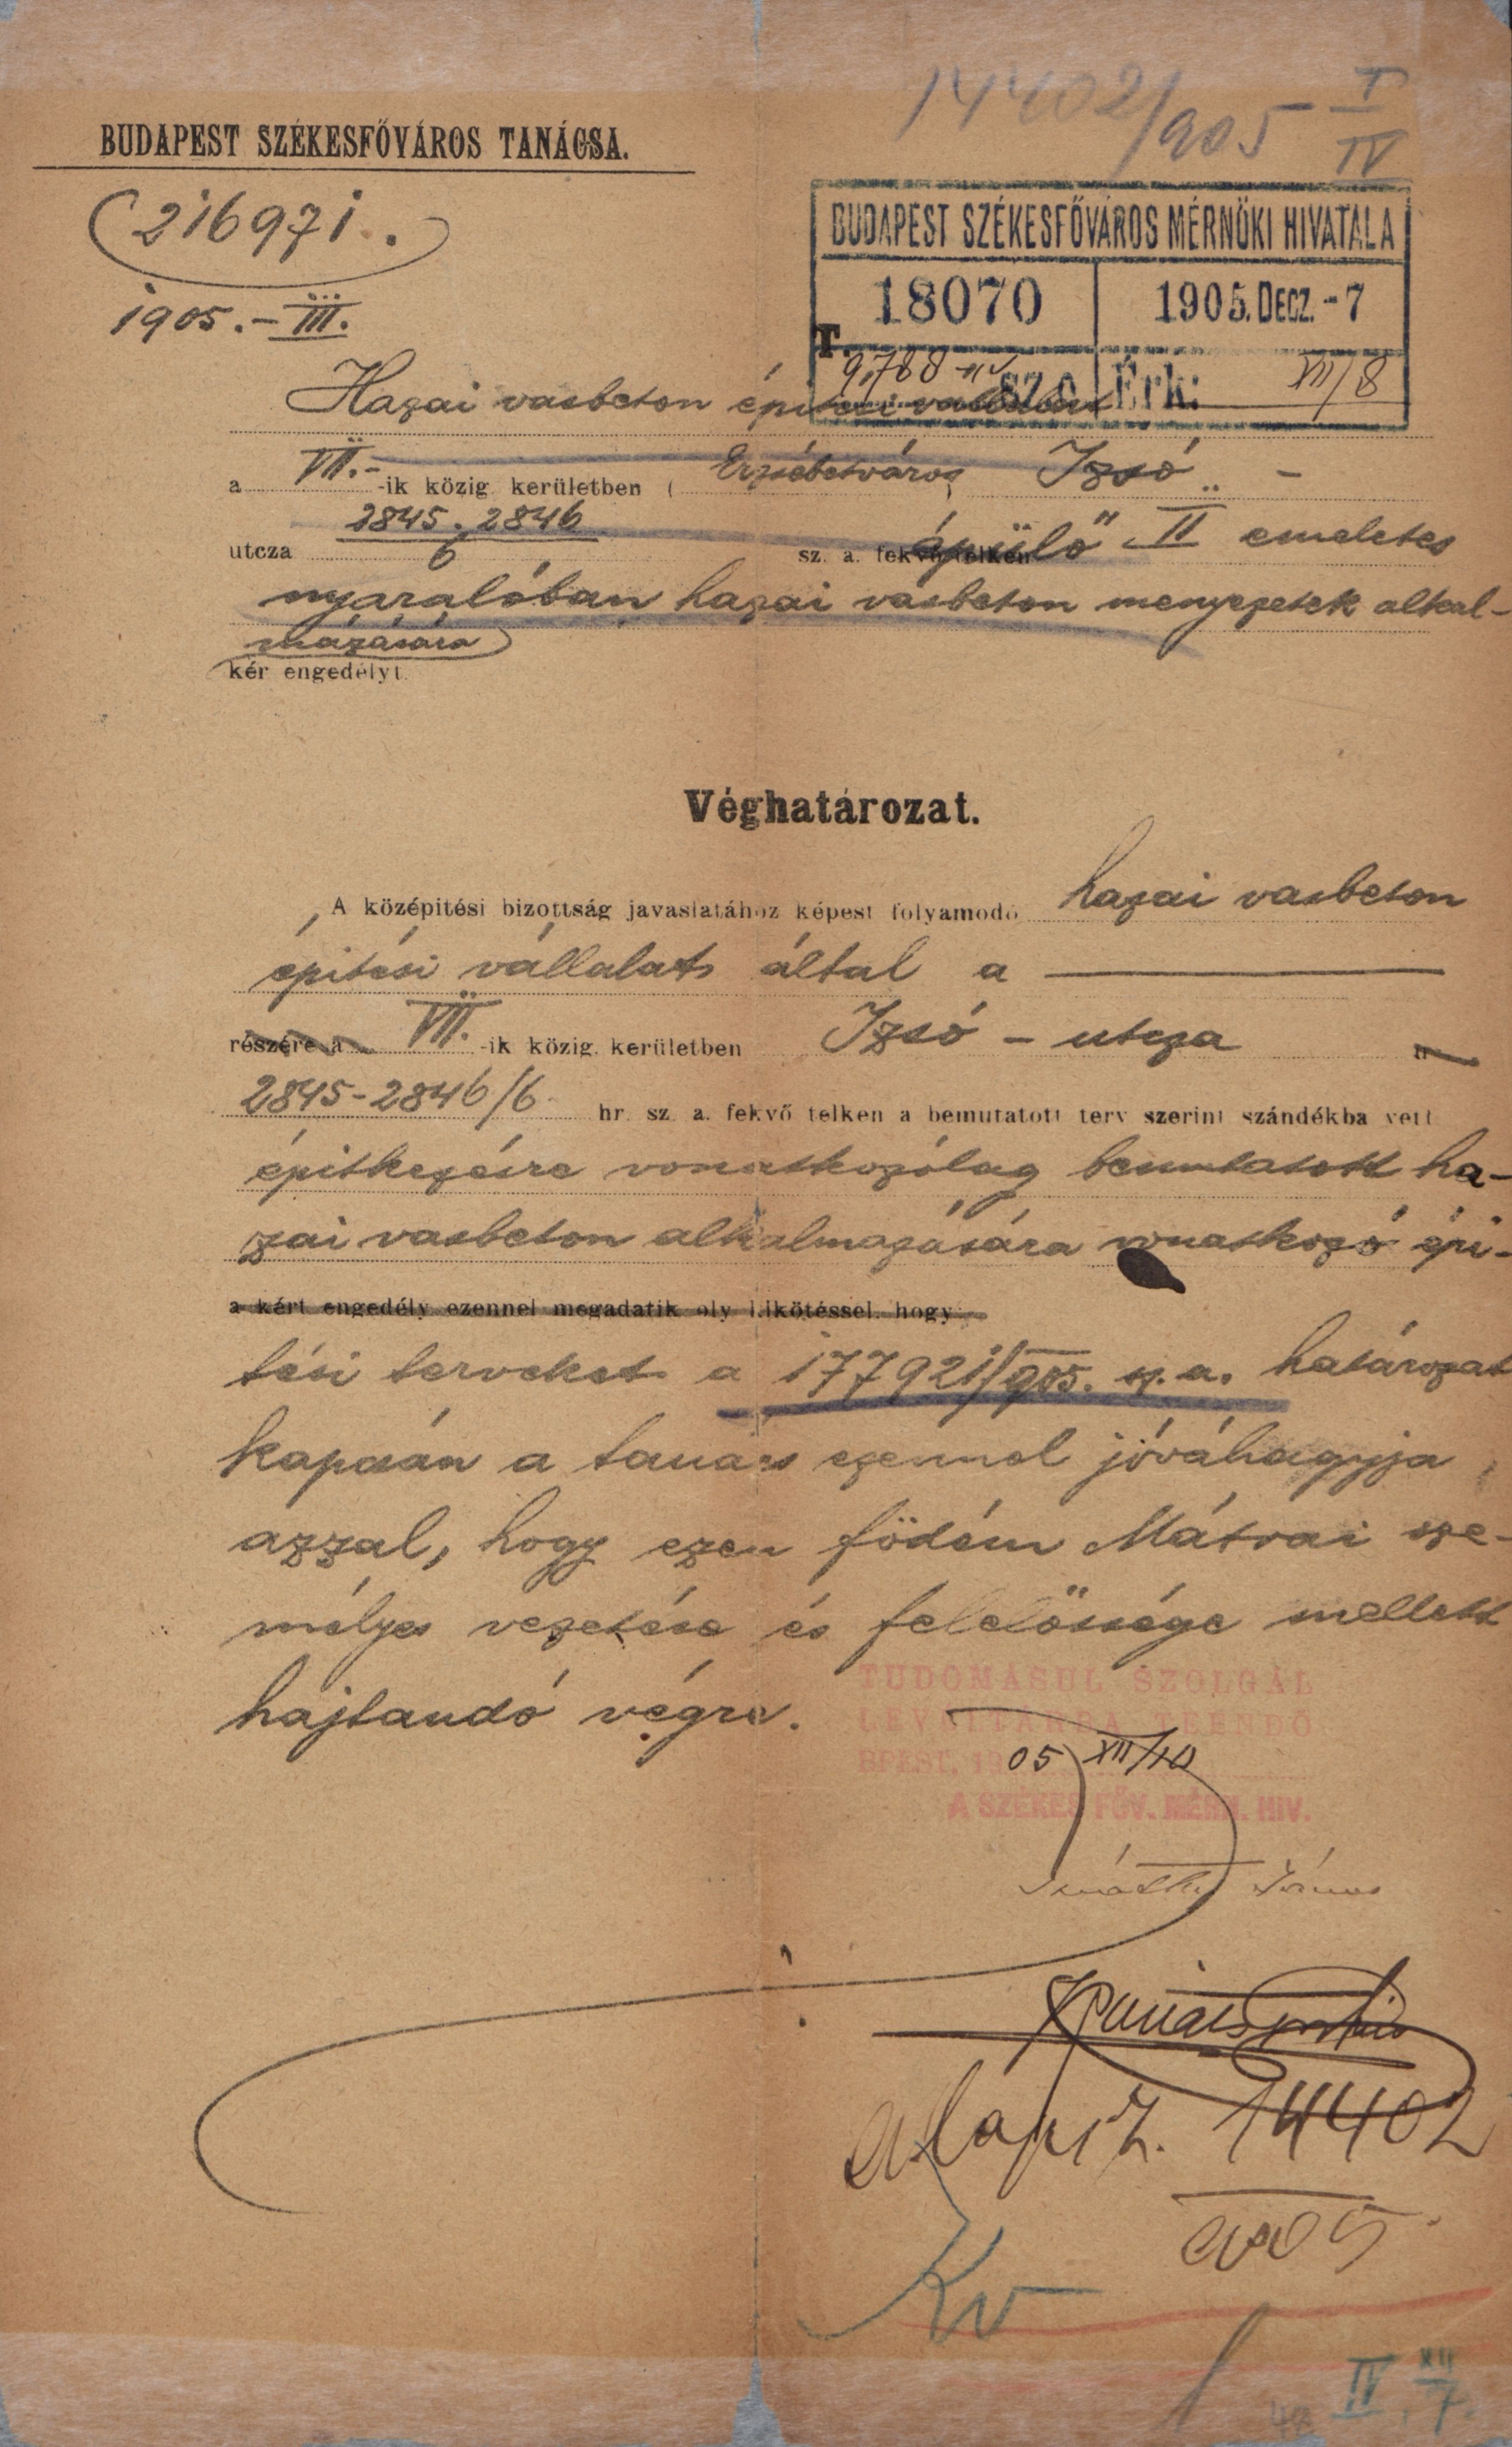 14402/905 I/IV
BUDAPEST SZÉKESFŐVÁROS TANÁCSA.
216971.
1905.-III.
BUDAPEST SZÉKESFŐVÁROS MÉRNÖKI HIVATALA
18070 1905. DECZ. -7
T. 9,788 Érk: XII/8
Hazai vasbeton építési
a VII.- -ik közig. kerületben ( Erzsébetváros Izsó -
utcza 2845. 2846 / 6 sz. a. fekvő telken épülő II emeletes
nyaralóban hazai vasbeton menyezetek alkal-
mazására
kér engedélyt.
Véghatározat.
A középitési bizottság javaslatához képest folyamodó hazai vasbeton
épitési vállalat által a
részére a VII. -ik közig. kerületben Izsó - utcza
2845-2846/6 hr. sz. a. fekvő telken a bemutatott terv szerint szándékba vett
épitkezésre vonatkozólag bemutatott ha-
zai vasbeton alkalmazására vonatkozó épi-
a kért engedély ezennel megadatik oly kikötéssel, hogy
tési terveket a 177921/905. sz. a. határozat
kapcsán a tanács ezennel jóváhagyja
azzal, hogy ezen födém Mátrai sze-
mélyes vezetése és felelőssége mellett
hajtandó végre.
TUDOMÁSUL SZOLGÁL
LEVÉLTÁRBA TEENDŐ
BPEST, 1905 XII/10
A SZÉKES FŐV. MÉRN. HIV.
János
Alapsz. 14402
905.
Kv
IV. XII/7.